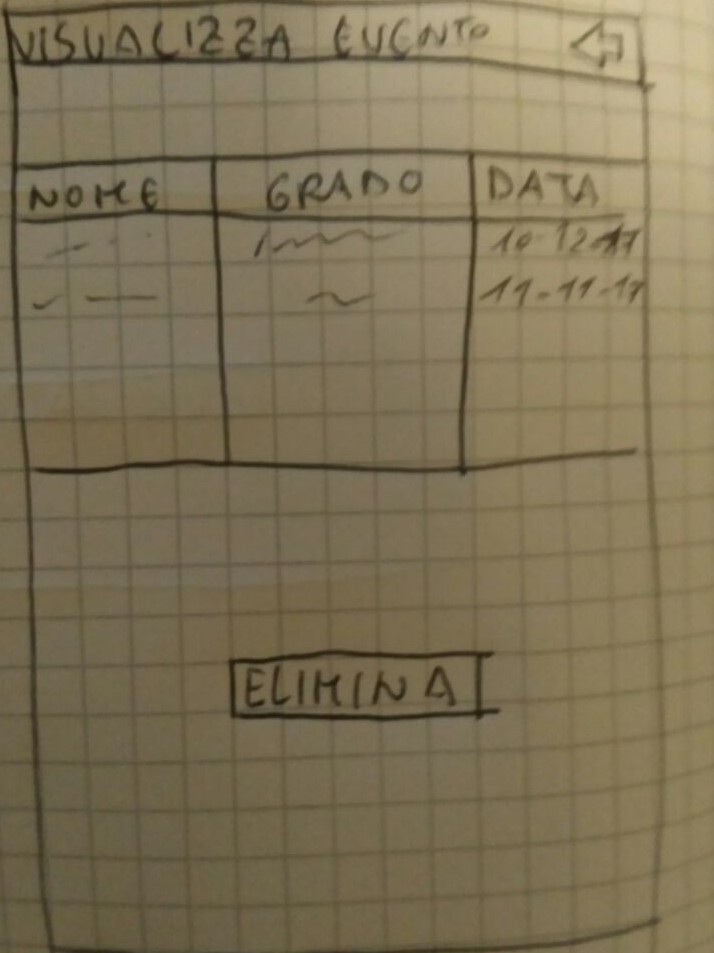 VISUALIZZA EVENTO
NOME GRADO DATA
10-12-17
11-11-17
ELIMINA